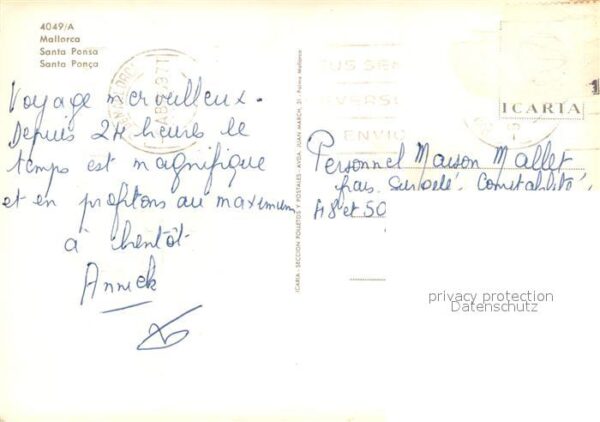 4049/A
Mallorca
Santa Ponsa
Santa Ponça
Voyage merveilleux.
Depuis 24 heures le
temps est magnifique
et en profitons au maximum
à bientôt
Annick
ICARIA - SECCION FOLLETOS Y POSTALES - AVDA. JUAN MARCH, 31 - Palma Mallorca
ICARIA
Personnel Maison Mallet
frais Surgelé. Comptabilité.
48 et 50
privacy protection
Datenschutz